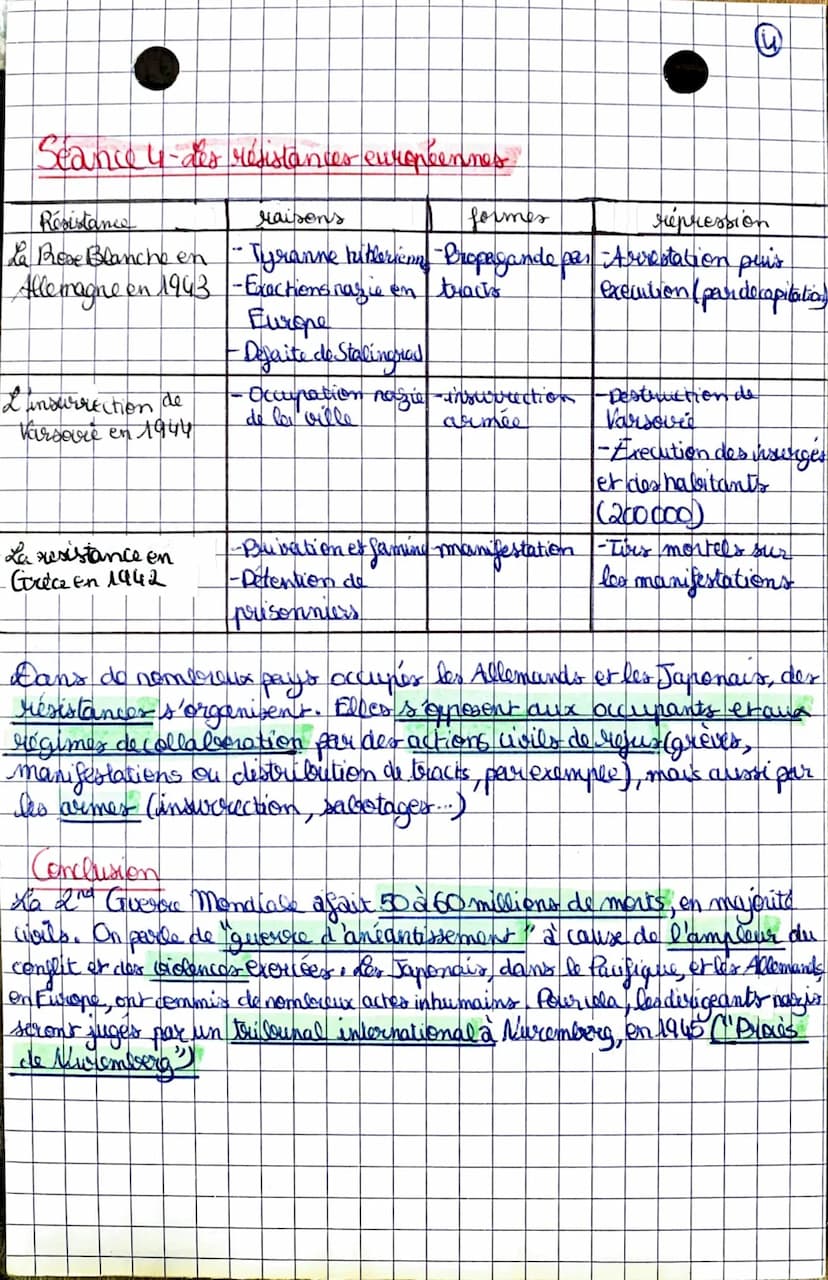 4
Séance 4 - des résistances européennes
Résistance | raisons | formes | répression
La Rose Blanche en
Allemagne en 1943
- Tyranne hitlérienne
- Exactions nazie en
Europe
- Defaite de Stalingrad
- Propagande par
tracts
- Arrestation puis
execution (par decapitation)
L'insurrection de
Varsovie en 1944
- Occupation nazie
de la ville
- insurrection
armée
- Destruction de
Varsovie
- Éxecution des insurgés
et des habitants
(200 000)
La resistance en
Grèce en 1942
- Privation et famine
- Détention de
prisonniers
- manifestation
- Tirs mortels sur
les manifestations
Dans de nombreux pays occupés les Allemands et les Japonais, des
résistances s'organisent. Elles s'opposent aux occupants et aux
régimes de collaboration par des actions civils de refus (grèves,
manifestations ou distribution de tracts, par exemple), mais aussi par
les armes (insurrection, sabotages...)
Conclusion
La 2nd Guerre Mondiale a fait 50 à 60 millions de morts, en majorité
civils. On parle de "guerre d'anéantissement" à cause de l'ampleur du
conflit et des violences exercées. Les Japonais, dans le Pacifique, et les Allemands,
en Europe, ont commis de nombreux actes inhumains. Pour cela, les dirigeants nazis
seront jugés par un tribunal international à Nuremberg, en 1945 ("Procès
de Nuremberg")